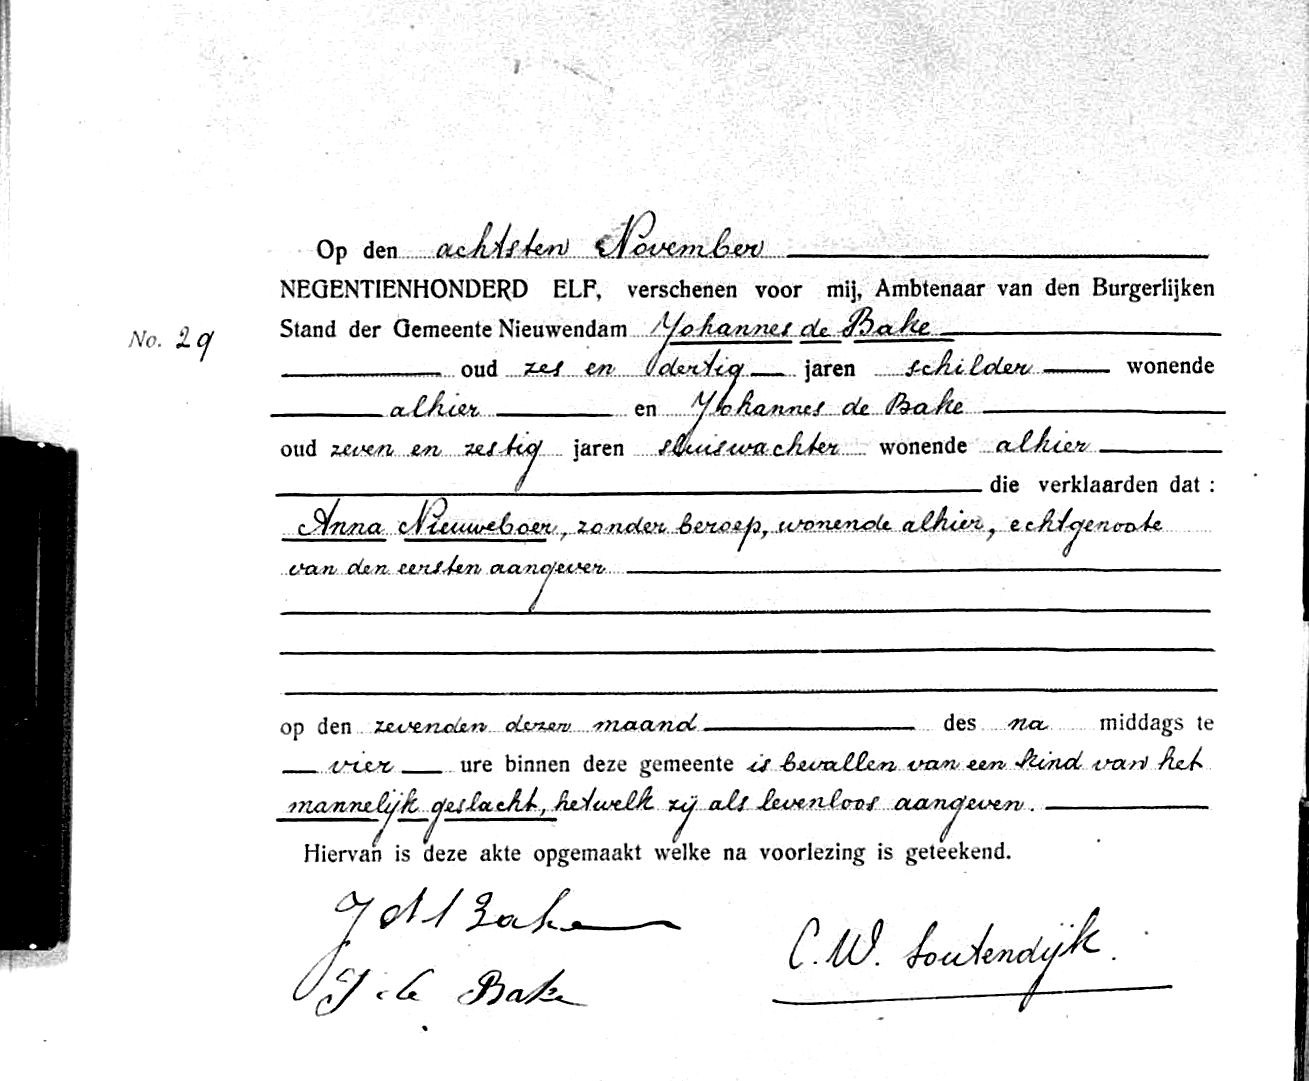 Op den achtsten November
NEGENTIENHONDERD ELF, verschenen voor mij, Ambtenaar van den Burgerlijken
No. 29
Stand der Gemeente Nieuwendam Johannes de Bake
oud zes en dertig jaren schilder wonende
alhier en Johannes de Bake
oud zeven en zestig jaren sluiswachter wonende alhier
die verklaarden dat :
Anna Nieuweboer, zonder beroep, wonende alhier, echtgenoote
van den eersten aangever
op den zevenden dezer maand des na middags te
vier ure binnen deze gemeente is bevallen van een kind van het
mannelijk geslacht, hetwelk zij als levenloos aangeven.
Hiervan is deze akte opgemaakt welke na voorlezing is geteekend.
J d Bake
C. W. Soutendijk.
J de Bake